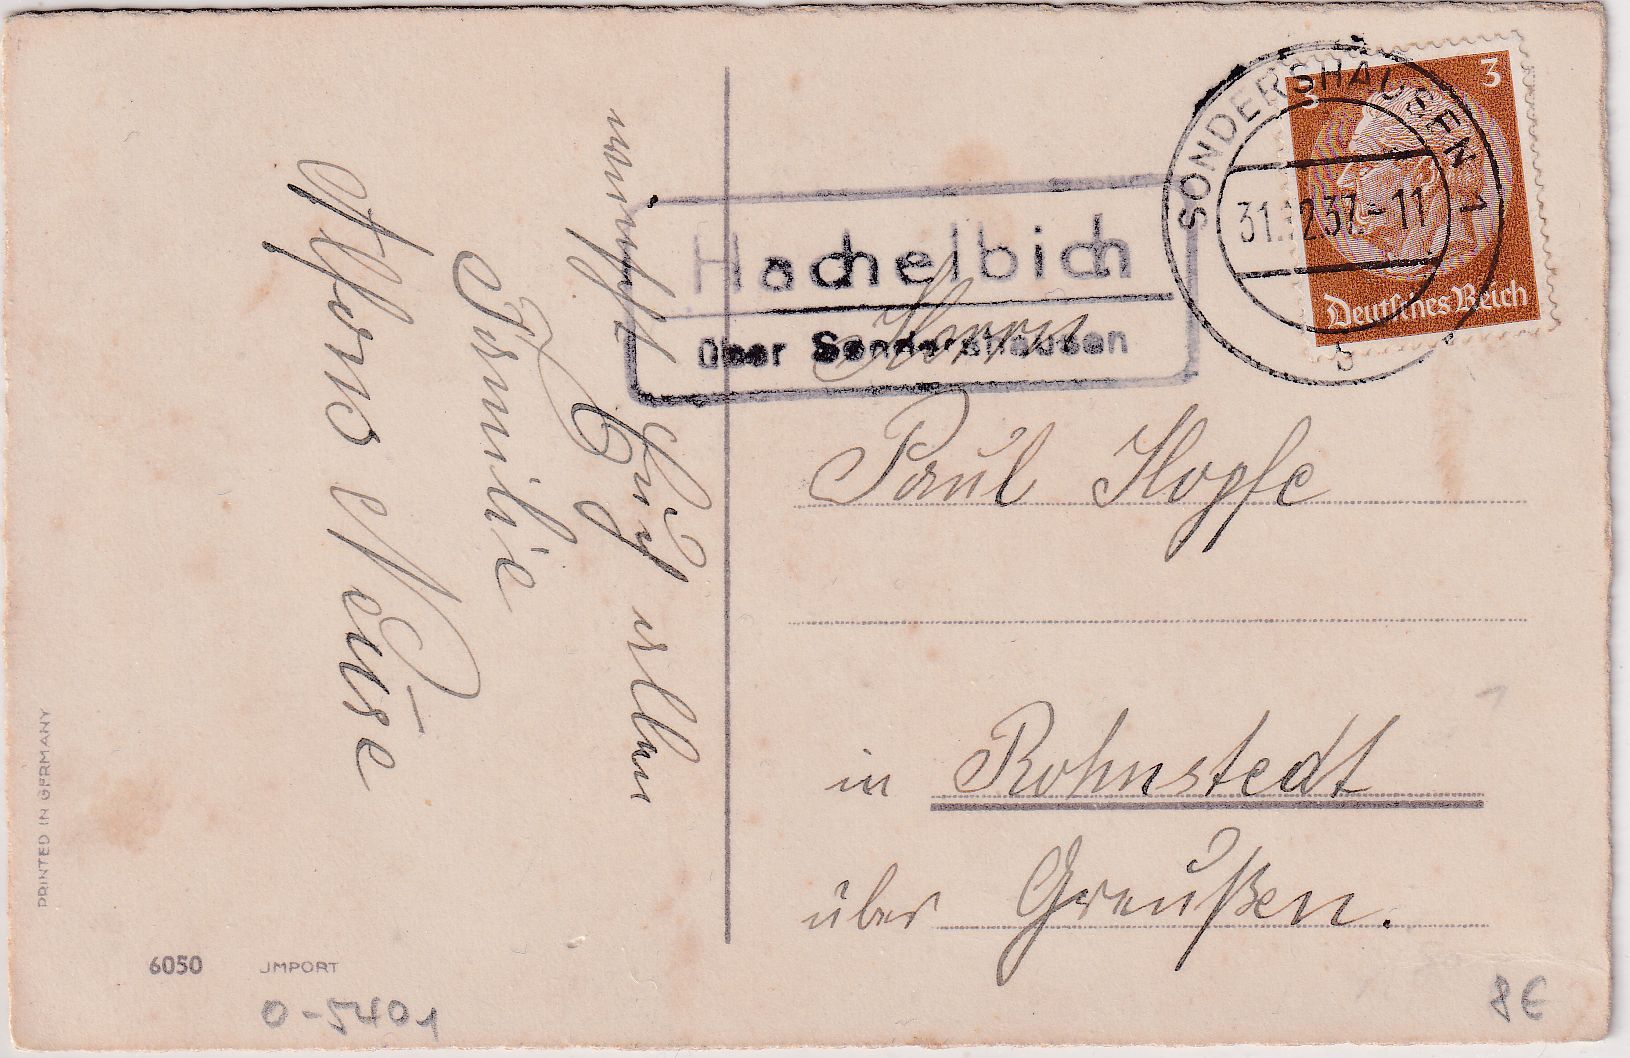 wünscht Euch allen
Familie
PRINTED IN GERMANY
6050 JMPORT
0-5401
SONDERSHAUSEN 1
31.12.37.-11
b
3 3
Deutsches Reich
Hachelbich
über Sondershausen
Herrn
Paul Hopfe
in Rohnstedt
über Greußen.
8€